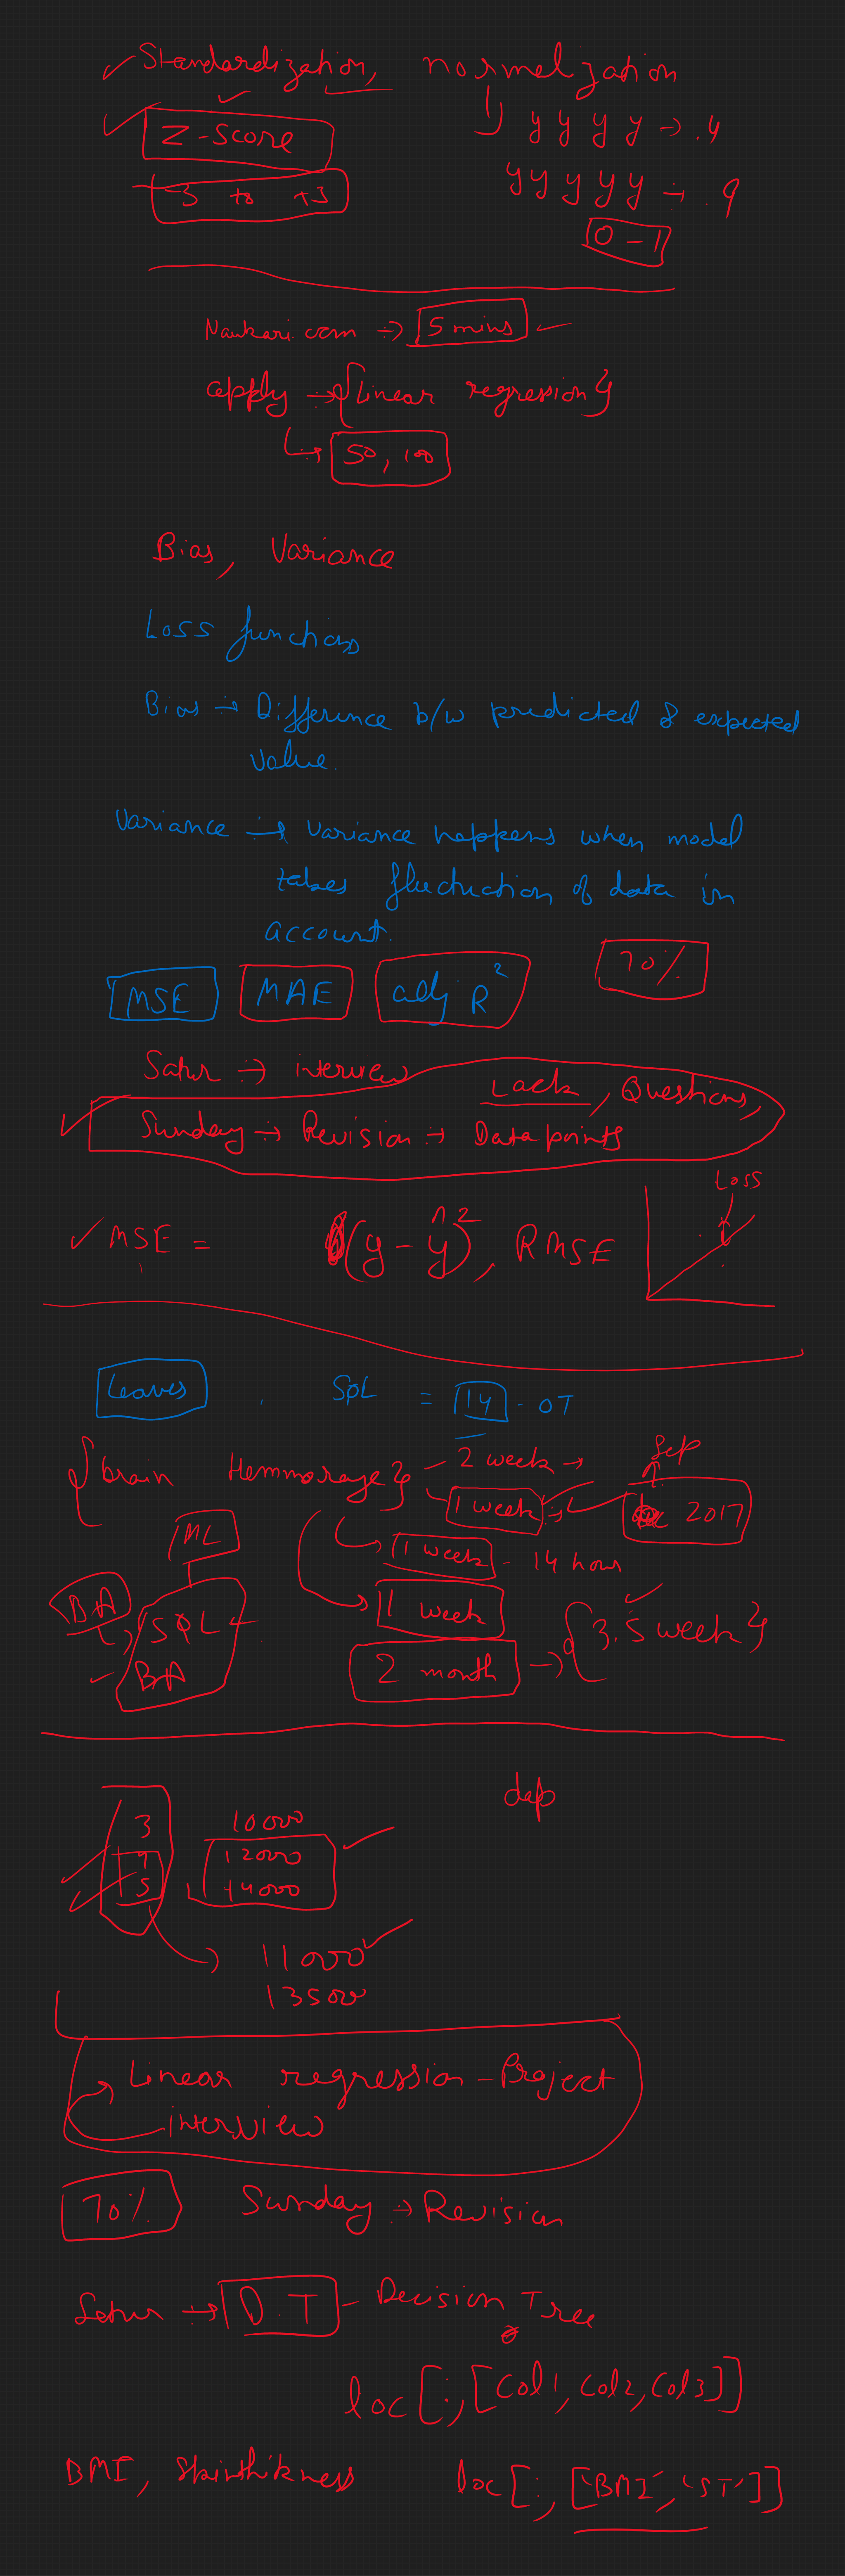 Standardization, normalization
Z-Score
y y y y → .4
-3 to +3
y y y y y → .9
0 - 1
Naukari.com → 5 mins
apply → {linear regression}
↳ 50, 100
Bias, Variance
Loss functions
Bias → Difference b/w predicted & expected
value.
Variance → variance happens when model
takes fluctuation of data in
account.
70%
MSE MAE adj R²
Satur → interview
Lack, Questions,
Sunday → Revision → Data points
Loss
MSE = (y - ŷ)², RMSE
Leaves SPL = 14 - OT
{brain Hemmorage} - 2 week → Sep
1 week → 2017
ML
1 week - 14 hours
BA
1 week
SQL
{3.5 week}
BA
2 month →
dep
3 10000
4 12000
5 14000
→ 11000
13500
→ Linear regression - Project
interview
70% Sunday → Revision
Satur → D.T - Decision Tree
loc[:,[Col1, Col2, Col3]]
BMI, Skinthikness loc[:,['BMI','ST']]